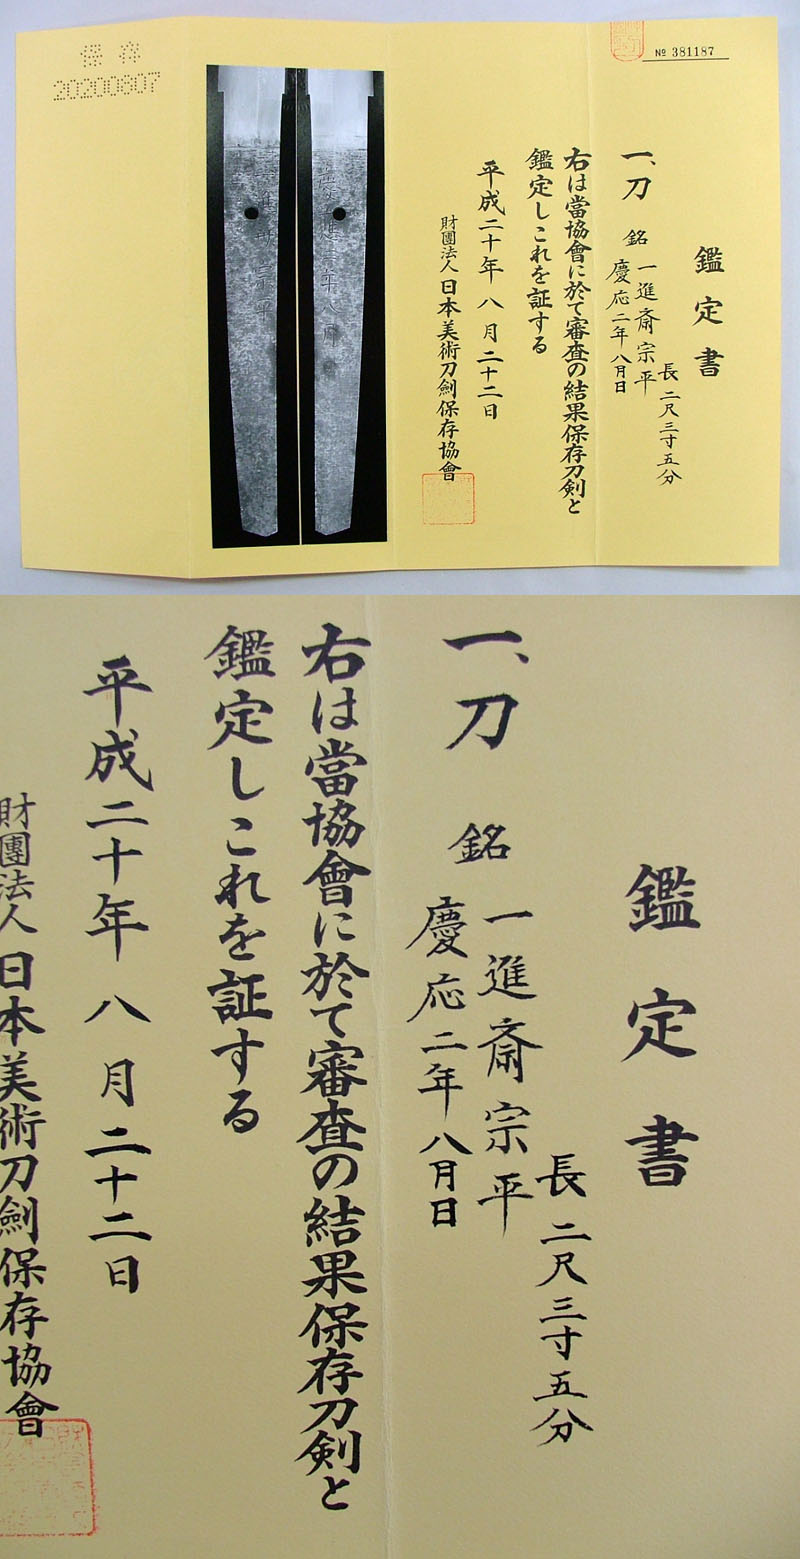 保存
20200807
№ 381187
鑑定書
一、刀 銘 一進斎宗平
慶応二年八月日
長 二尺三寸五分
右は當協會に於て審査の結果保存刀剣と
鑑定しこれを証する
平成二十年 八月 二十二日
財團法人 日本美術刀劍保存協會
鑑定書
長 二尺三寸五分
一、刀 銘 一進斎宗平
慶応二年八月日
右は當協會に於て審査の結果保存刀剣と
鑑定しこれを証する
平成二十年 八月 二十二日
財團法人 日本美術刀劍保存協會